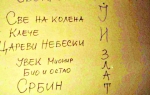 Све на колена
Клече
Цареви Небески
Увек
Био и остао
Србин
У
И
З
Л
А
Т